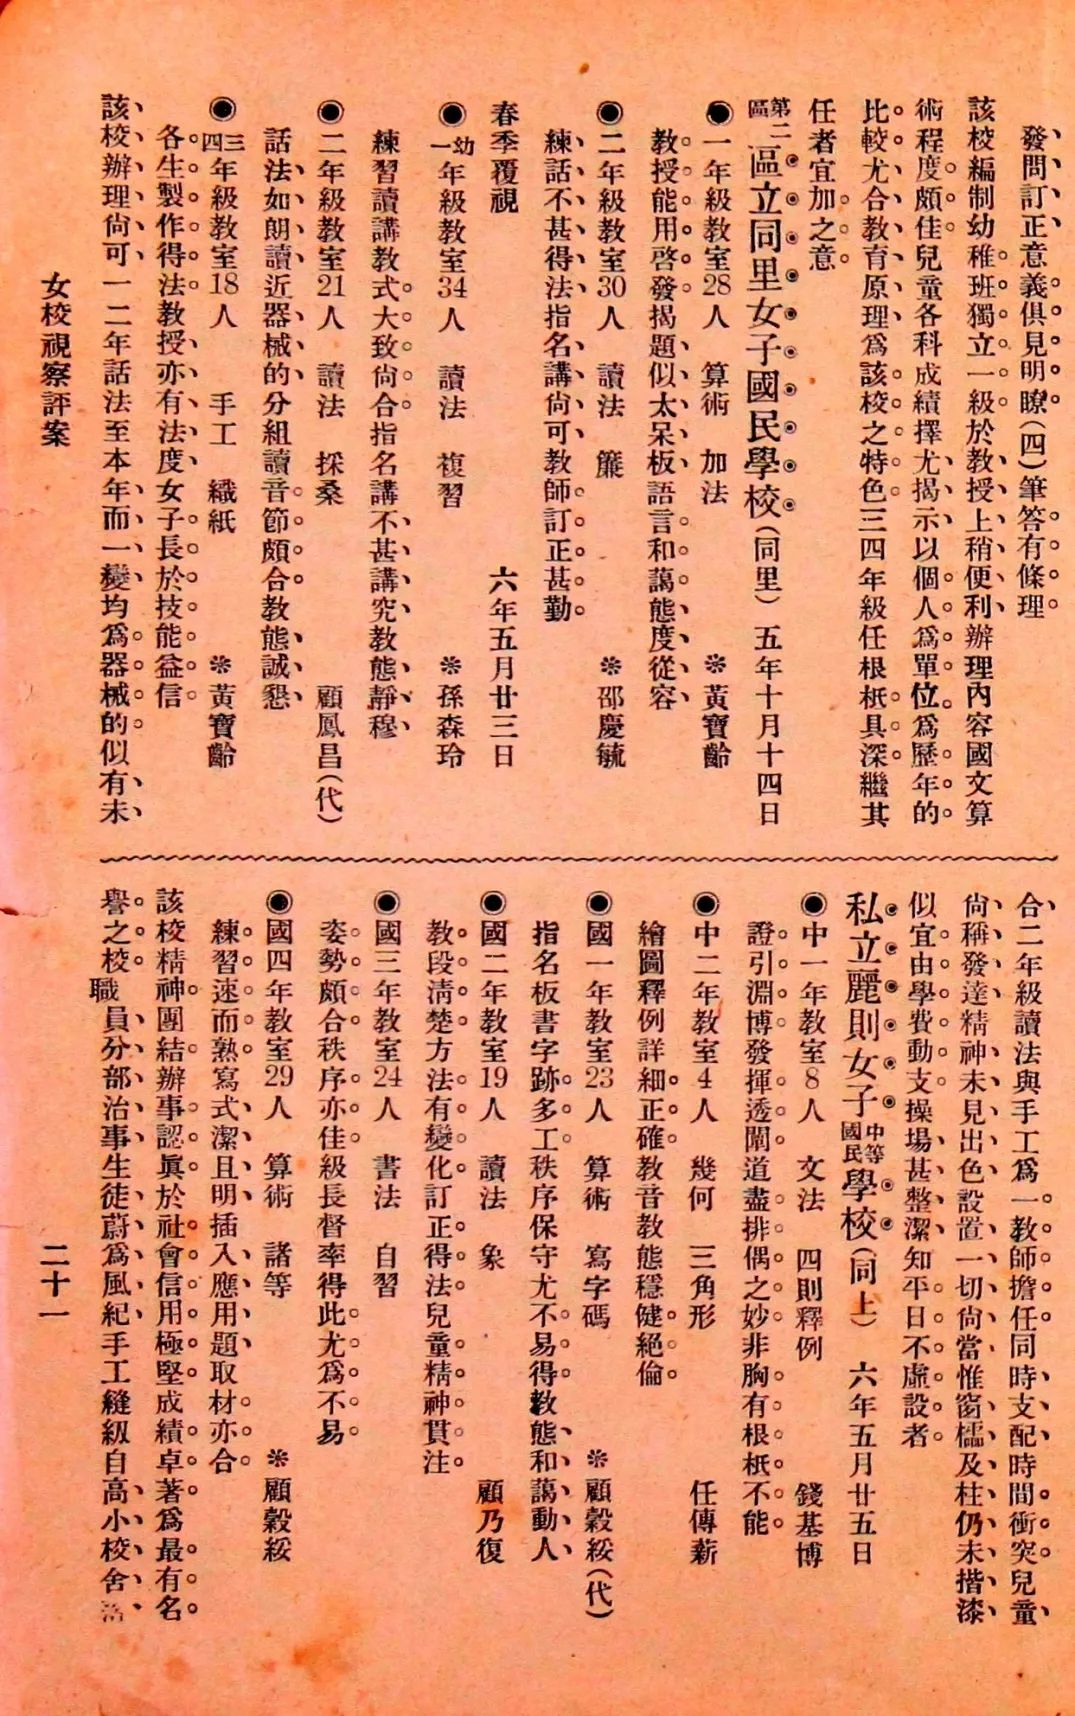 發問訂正意義俱見明瞭(四)筆答有條理
該校編制幼稚班獨立一級於教授上稍便利辦理內容國文算
術程度頗佳兒童各科成績擇尤揭示以個人爲單位爲歷年的
比較尤合教育原理爲該校之特色三四年級任根柢具深繼其
任者宜加之意
第二區區立同里女子國民學校(同里)五年十月十四日
◉一年級教室28人 算術 加法 ※黃寶齡
教授能用啓發揭題似太呆板語言和藹態度從容
◉二年級教室30人 讀法 簾 ※邵慶毓
練話不甚得法指名講尙可教師訂正甚勤
春季覆視 六年五月廿三日
◉幼一年級教室34人 讀法 複習 ※孫森玲
練習讀講教式大致尙合指名講不甚講究教態靜穆
◉二年級教室21人 讀法 採桑 顧鳳昌(代)
話法如朗讀近器械的分組讀音節頗合教態誠懇
◉三四年級教室18人 手工 織紙 ※黃寶齡
各生製作得法教授亦有法度女子長於技能益信
該校辦理尙可一二年話法至本年而一變均爲器械的似有未
合二年級讀法與手工爲一教師擔任同時支配時間衝突兒童
尙稱發達精神未見出色設置一切尙當惟窗檽及柱仍未揩漆
似宜由學費動支操場甚整潔知平日不虛設者
私立麗則女子中等國民學校(同上) 六年五月廿五日
◉中一年教室8人 文法 四則釋例 錢基博
證引淵博發揮透闡道盡排偶之妙非胸有根柢不能
◉中二年教室4人 幾何 三角形 任傳薪
繪圖釋例詳細正確教音教態穩健絕倫
◉國一年教室23人 算術 寫字碼 ※顧穀綏(代)
指名板書字跡多工秩序保守尤不易得教態和藹動人
◉國二年教室19人 讀法 象 顧乃復
教段清楚方法有變化訂正得法兒童精神貫注
◉國三年教室24人 書法 自習
姿勢頗合秩序亦佳級長督率得此尤爲不易
◉國四年教室29人 算術 諸等 ※顧穀綏
練習速而熟寫式潔且明插入應用題取材亦合
該校精神團結辦事認眞於社會信用極堅成績卓著爲最有名
譽之校職員分部治事生徒蔚爲風紀手工縫級自高小校舍
女校視察評案
二十一